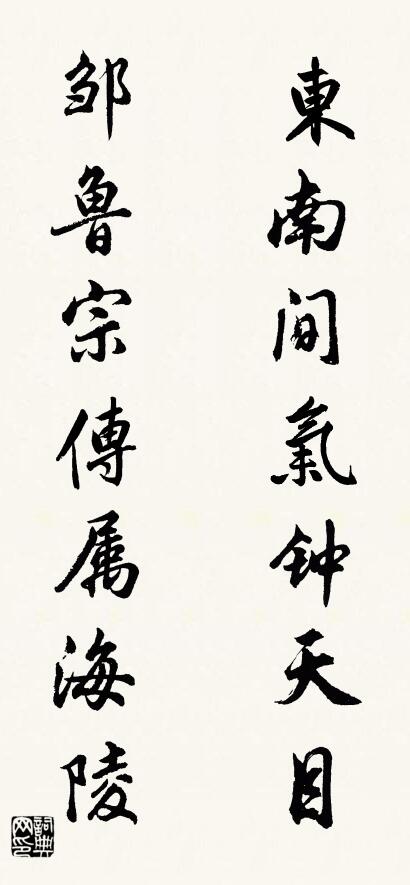 東南间氣钟天目
邹魯宗傳属海陵
詞典网印